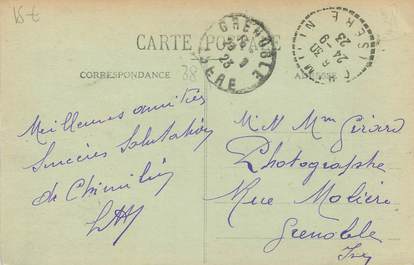 15 €
CARTE POSTALE
CORRESPONDANCE
38
ADRESSE
GRENOBLE
23
ISERE
CHIMILIN
24-9
23
ISERE
Meilleures amitiés
Sincères Salutations
de Chimilin
M. & Mme Girard
Photographe
Rue Molière
Grenoble
Isère